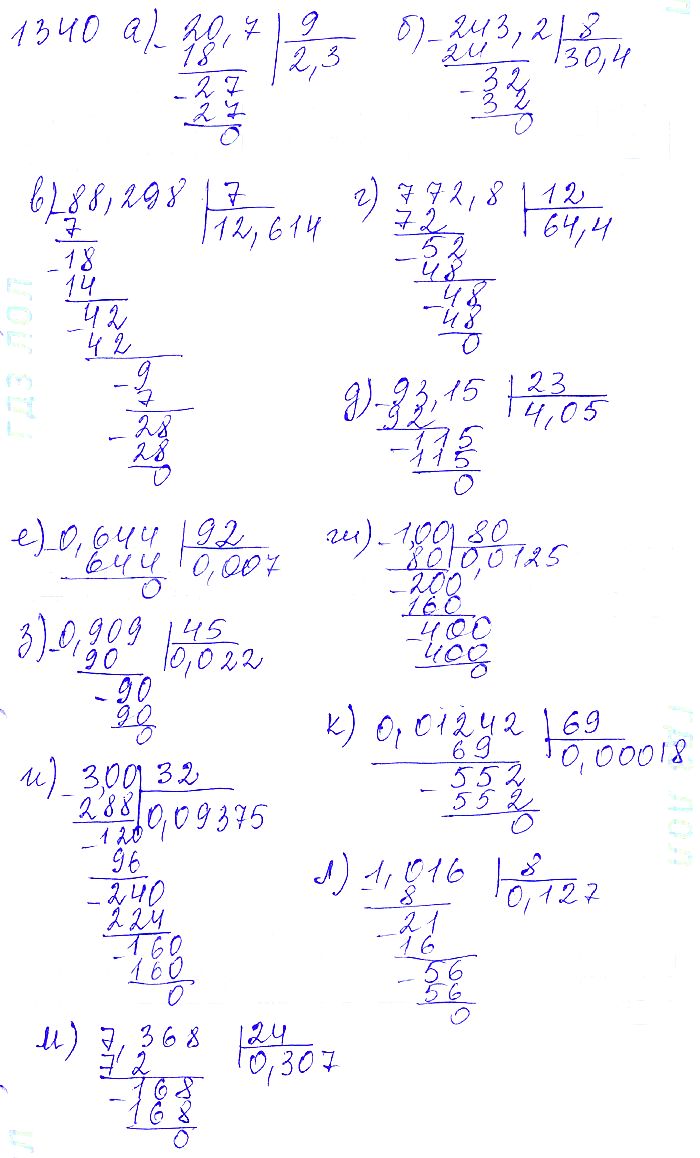 1340 а) - 20,7 | 9
18 | 2,3
- 27
27
0
б) - 243,2 | 8
24 | 30,4
- 32
32
0
в) - 88,298 | 7
7 | 12,614
- 18
14
- 42
42
- 9
7
- 28
28
0
г) 772,8 | 12
72 | 64,4
- 52
48
- 48
48
0
д) - 93,15 | 23
92 | 4,05
- 115
115
0
е) - 0,644 | 92
644 | 0,007
0
ж) - 1,00 | 80
80 | 0,0125
- 200
160
- 400
400
0
з) - 0,909 | 45
90 | 0,022
- 90
90
0
к) 0,01242 | 69
69 | 0,00018
- 552
552
0
и) - 3,00 | 32
288 | 0,09375
- 120
96
- 240
224
- 160
160
0
л) - 1,016 | 8
8 | 0,127
- 21
16
- 56
56
0
м) 7,368 | 24
72 | 0,307
- 168
168
0
ГДЗ ЛОЛ